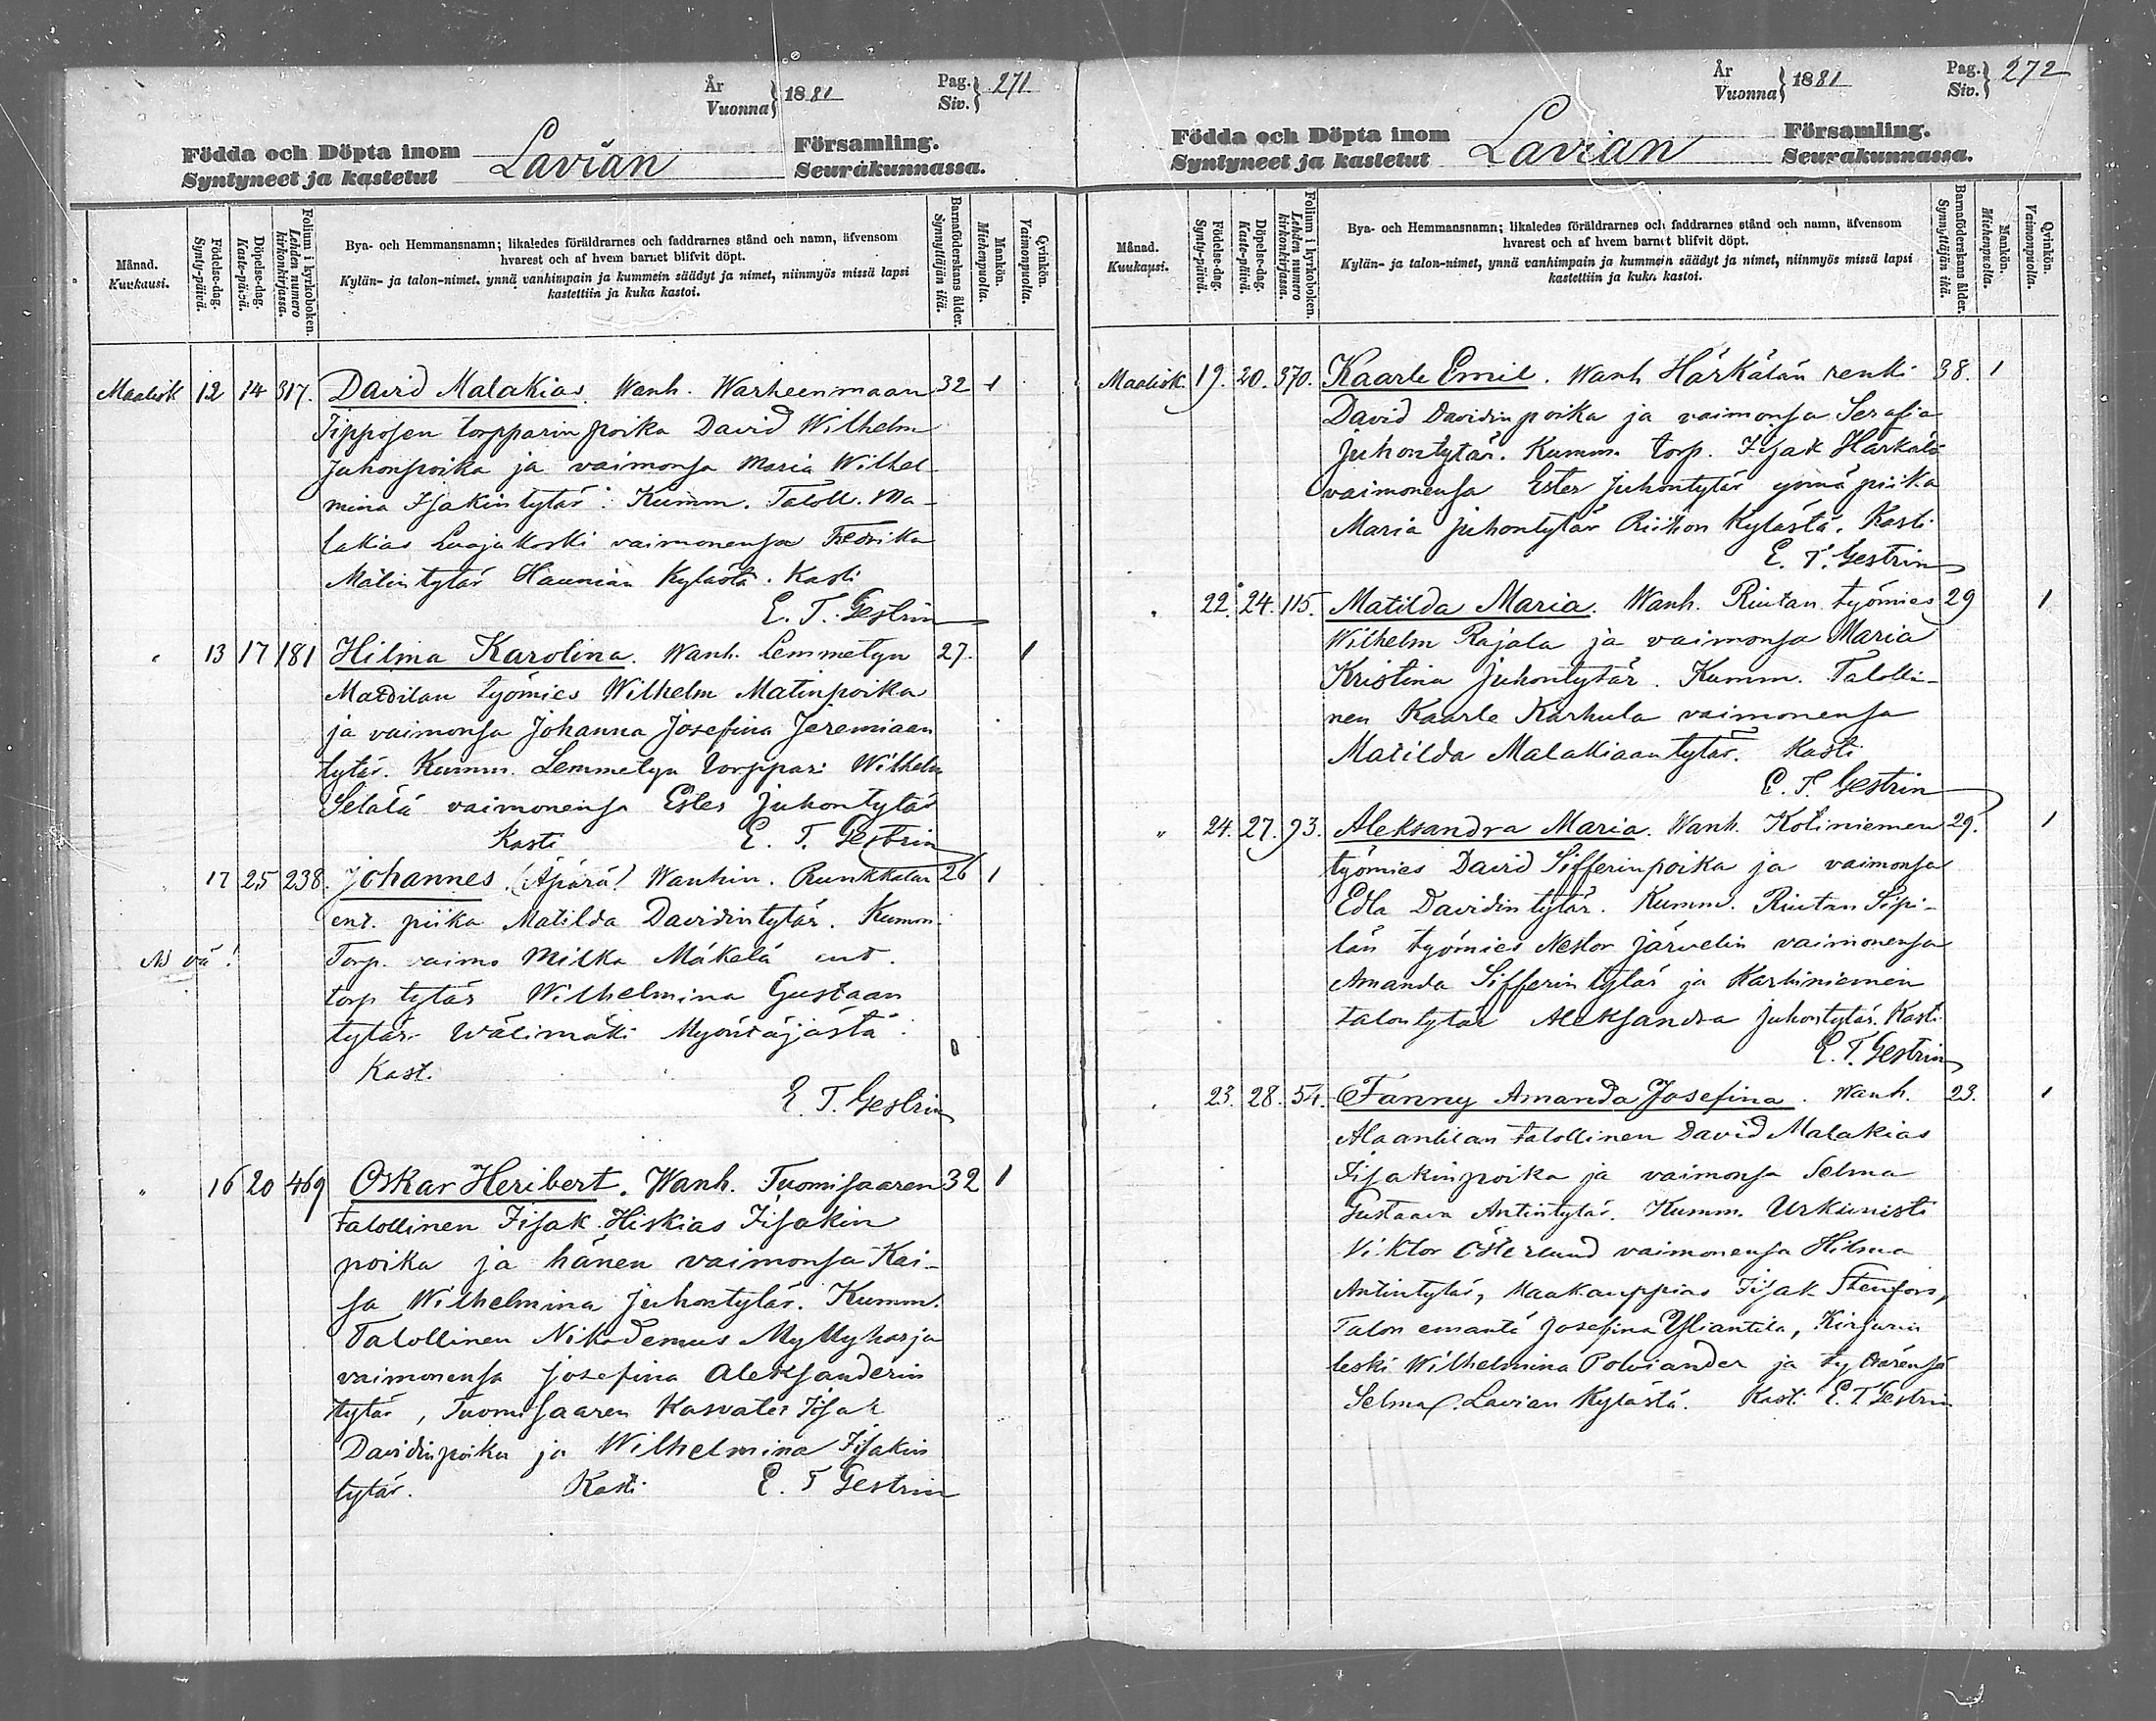 År
Vuonna } 1881
Pag.
Siv. } 271.
Födda och Döpta inom
Syntyneet ja kastetut
Lavian
Församling.
Seurakunnassa.
Månad.
Kuukausi.
Födelse-dag.
Synty-päivä.
Döpelse-dag.
Kaste-päivä.
Folium i kyrkoboken.
Lehden numero kirkonkirjassa.
Bya- och Hemmansnamn; likaledes föräldrarnes och faddrarnes stånd och namn, äfvensom
hvarest och af hvem barnet blifvit döpt.
Kylän- ja talon-nimet, ynnä vanhimpain ja kummein säädyt ja nimet, niinmyös missä lapsi
kastettiin ja kuka kastoi.
Barnaföderskans ålder.
Synnyttäjän ikä.
Mankön.
Miehenpuolia.
Qvinkön.
Vaimonpuolia.
Maalisk 12 14 317. David Malakias. Wanh. Warheenmaan 32 1
Jipposen torpparin poika David Wilhelm
Juhonpoika ja vaimonsa Maria Wilhel-
mina Isakintytär. Kumm. Taloll. Ma-
lakias Luojakoski vaimonensa Fredrika
Matintytär Haunian Kylästä. Kasti
E. T. Gestrin
" 13 17 181 Hilma Karolina. Wanh. Lemmetyn 27. 1
Mattilan työmies Wilhelm Matinpoika
ja vaimonsa Johanna Josefina Jeremiaan
tytär. Kumm. Lemmetyn torppari Wilhelm
Setälä vaimonensa Ester Juhontytär
Kasti E. T. Gestrin
" 17 25 238. Johannes. (Äpärä) Wanhin. Runkkalan 26 1
ent. piika Matilda Davidintytär. Kumm.
Torp. vaimo Milka Mäkelä ent.
torp tytär Wilhelmina Gustaan
tytär Wälimäki Myöntäjästä.
Kast.
E. T. Gestrin
" 16 20 469 Oskar Heribert. Wanh. Tuomisaaren 32 1
talollinen Iisak Hiskias Iisakin
poika ja hänen vaimonsa Kai-
sa Wilhelmina Juhontytär. Kumm.
Talollinen Nikodemus Myllyharja
vaimonensa Josefina Aleksanderin
tytär, Tuomisaaren Kasvates Iisak
Davidinpoika ja Wilhelmina Iisakin
tytär. Kasti E. T Gestrin
År
Vuonna } 1881
Pag.
Siv. } 272
Födda och Döpta inom
Syntyneet ja kastetut
Lavian
Församling.
Seurakunnassa.
Månad.
Kuukausi.
Födelse-dag.
Synty-päivä.
Döpelse-dag.
Kaste-päivä.
Folium i kyrkoboken.
Lehden numero kirkonkirjassa.
Bya- och Hemmansnamn; likaledes föräldrarnes och faddrarnes stånd och namn, äfvensom
hvarest och af hvem barnet blifvit döpt.
Kylän- ja talon-nimet, ynnä vanhimpain ja kummein säädyt ja nimet, niinmyös missä lapsi
kastettiin ja kuka kastoi.
Barnaföderskans ålder.
Synnyttäjän ikä.
Mankön.
Miehenpuolia.
Qvinkön.
Vaimonpuolia.
Maalisk. 19. 20. 370. Kaarle Emil. Wanh Härkälän renki 38. 1
David Davidin poika ja vaimonsa Serafia
Juhontytär. Kumm. torp. Isak Härkälä
vaimonensa Ester Juhontytär ynnä piika
Maria Juhontytär Riihon Kylästä. Kasti
E. T. Gestrin
" 22. 24. 115. Matilda Maria. Wanh. Riutan työmies 29 1
Wilhelm Rajala ja vaimonsa Maria
Kristina Juhontytär. Kumm. Talolli-
nen Kaarle Karhula vaimonensa
Matilda Malakiaantytär. Kasti
E. T. Gestrin
" 24. 27. 93. Aleksandra Maria. Wanh. Kotiniemen 29. 1
työmies David Sifferinpoika ja vaimonsa
Edla Davidintytär. Kumm. Riutan Sipi-
län työmies Nestor Järvelin vaimonensa
Amanda Sifferintytär ja Karhiniemen
talontytär Aleksandra Juhontytär. Kasti
E. T. Gestrin
" 23. 28. 54. Fanny Amanda Josefina. Wanh. 23. 1
Alaantilan talollinen David Malakias
Iisakinpoika ja vaimonsa Selma
Gustaava Antintytär. Kumm. Urkunisti
Viktor Österlund vaimonensa Hilma
Antintytär, Maakauppias Iisak Stenfors,
Talon emäntä Josefina Yliantila, Kirjurin
leski Wilhelmina Polviander ja tyttärensä
Selma, Lavian Kylästä. Kasti E. T Gestrin